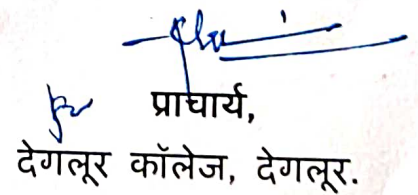 प्राचार्य,
देगलूर कॉलेज, देगलूर.